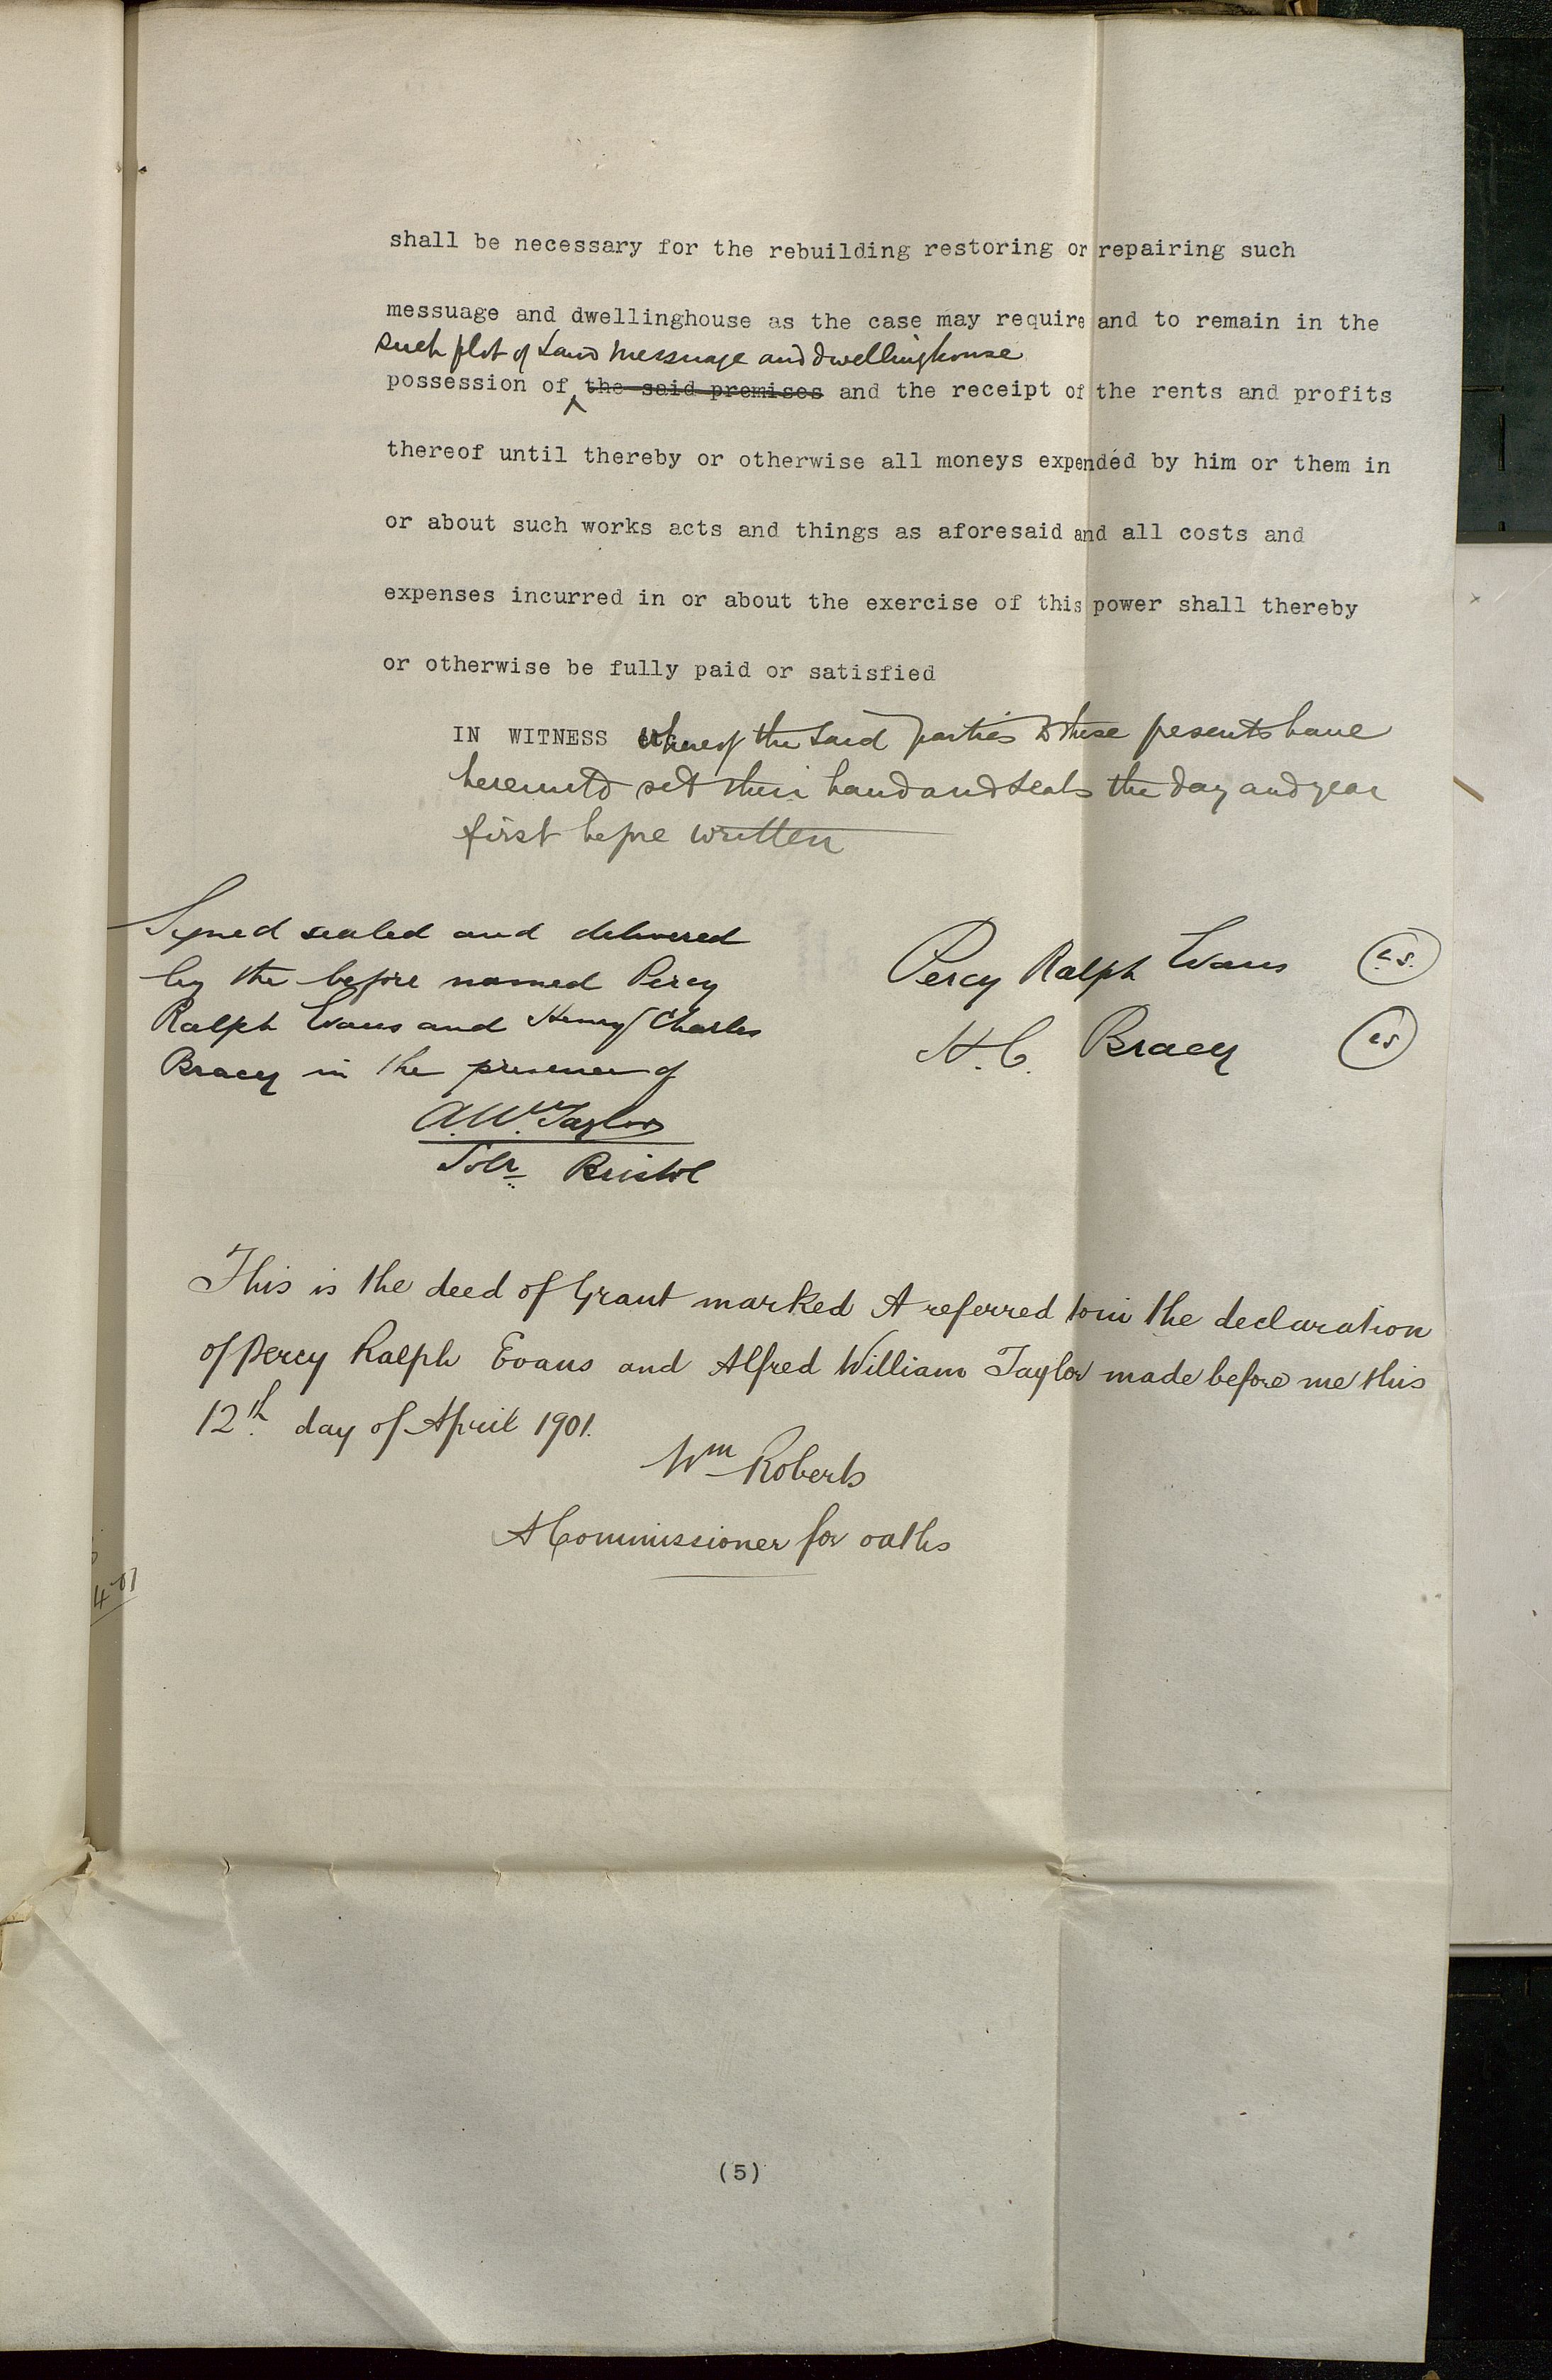 shall be necessary for the rebuilding restoring or repairing such
messuage and dwellinghouse as the case may require and to remain in the
such plot of land messuage and dwellinghouse
possession of the said premises and the receipt of the rents and profits
thereof until thereby or otherwise all moneys expended by him or them in
or about such works acts and things as aforesaid and all costs and
expenses incurred in or about the exercise of this power shall thereby
or otherwise be fully paid or satisfied
IN WITNESS whereof the said parties to these presents have
hereunto set their hand and seals the day and year
first before written
Signed sealed and delivered
by the before named Percy
Ralph Evans and Henry Charles
Bracey in the presence of
A. Wm. Taylor
Solr Bristol
Percy Ralph Evans L.S.
H. C. Bracey LS
This is the deed of Grant marked A referred to in the declaration
of Percy Ralph Evans and Alfred William Taylor made before me this
12th day of April 1901.
Wm Roberts
A Commissioner for oaths
4-01
(5)